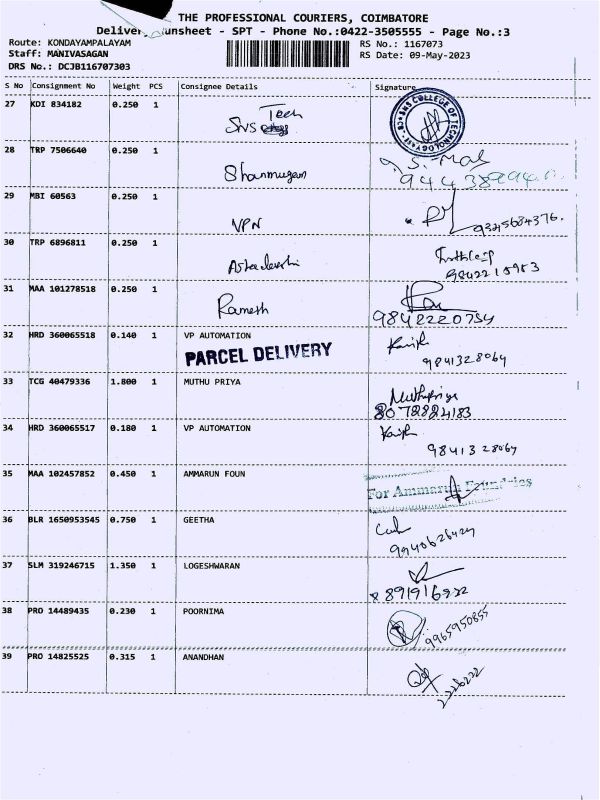 THE PROFESSIONAL COURIERS, COIMBATORE
Runsheet - SPT - Phone No.:0422-3505555 - Page No.:3
Route: KONDAYAMPALAYAM
RS No.: 1167073
Staff: MANIVASAGAN
RS Date: 09-May-2023
DRS No.: DCJB116707303
S No Consignment No Weight PCS Consignee Details Signature
27 KDI 834182 0.250 1 SNS Tech
SNS COLLEGE OF TECHNOLOGY
28 TRP 7506640 0.250 1 Shanmugam
29 MBI 60563 0.250 1 VPN
9345684376.
30 TRP 6896811 0.250 1
31 MAA 101278518 0.250 1 Ramesh
9842220754
32 HRD 360065518 0.140 1 VP AUTOMATION
PARCEL DELIVERY
9841328064
33 TCG 40479336 1.800 1 MUTHU PRIYA
Muthupriya
8072824183
34 HRD 360065517 0.180 1 VP AUTOMATION
9841328064
35 MAA 102457852 0.450 1 AMMARUN FOUN
For Ammarun Foundries
36 BLR 1650953545 0.750 1 GEETHA
9940626424
37 SLM 319246715 1.350 1 LOGESHWARAN
38 PRO 14489435 0.230 1 POORNIMA
9965950855
39 PRO 14825525 0.315 1 ANANDHAN